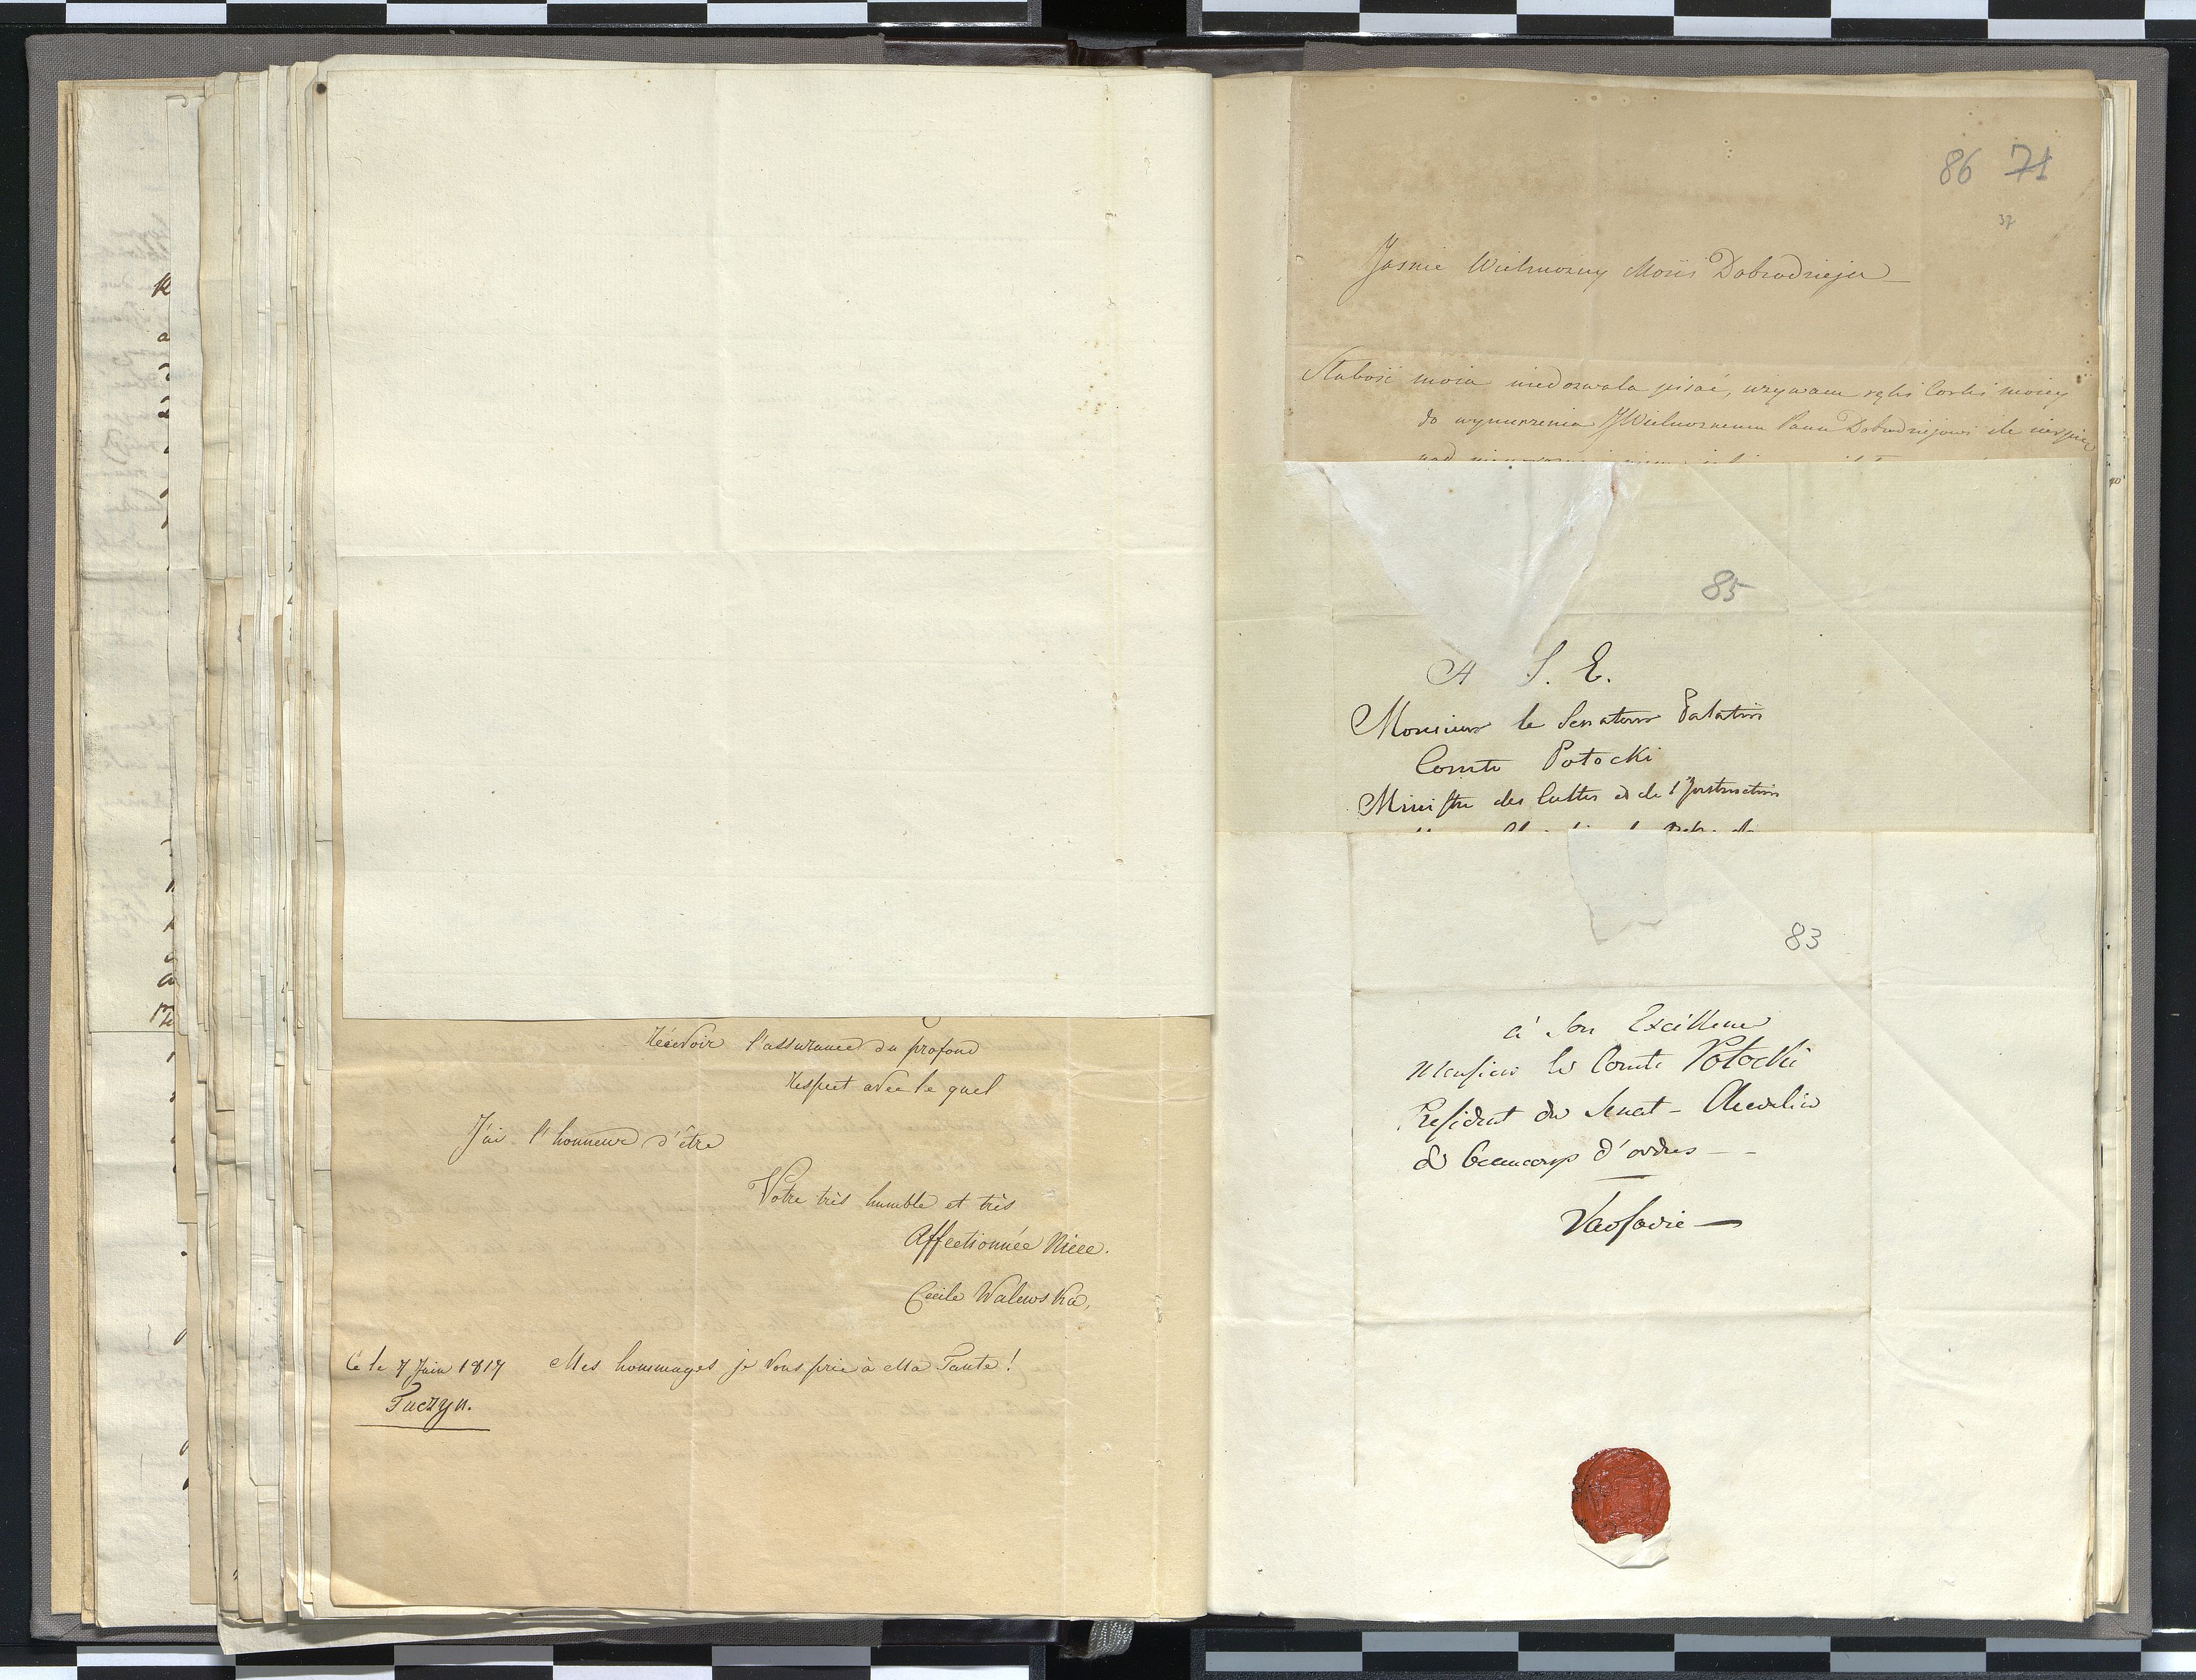 recevoir l'assurance du profond
respect avec le quel
J'ai l'honneur d'être
Votre très humble et très
Affectionnée Niece.
Cecile Walewska,
Ce le 7 Juin 1817 Mes hommages je Vous prie à Ma Tante!
Tuczyn.
86 71
37
Jasnie Wielmozny Mosci Dobrodzieju
Słabość moia niedozwala pisać, uzywam ręki Corki moiey
do wynurzenia JWielmoznemu Panu Dobrodziejowi ile
85
A S. E.
Monsieur le Senateur Palatin
Comte Potocki
Ministre des Cultes et de l'Instruction
83
à Son Excellence
Monsieur le Comte Potocki
President du Senat - Chevalier
de beaucoup d'ordres - -
Varsovie -